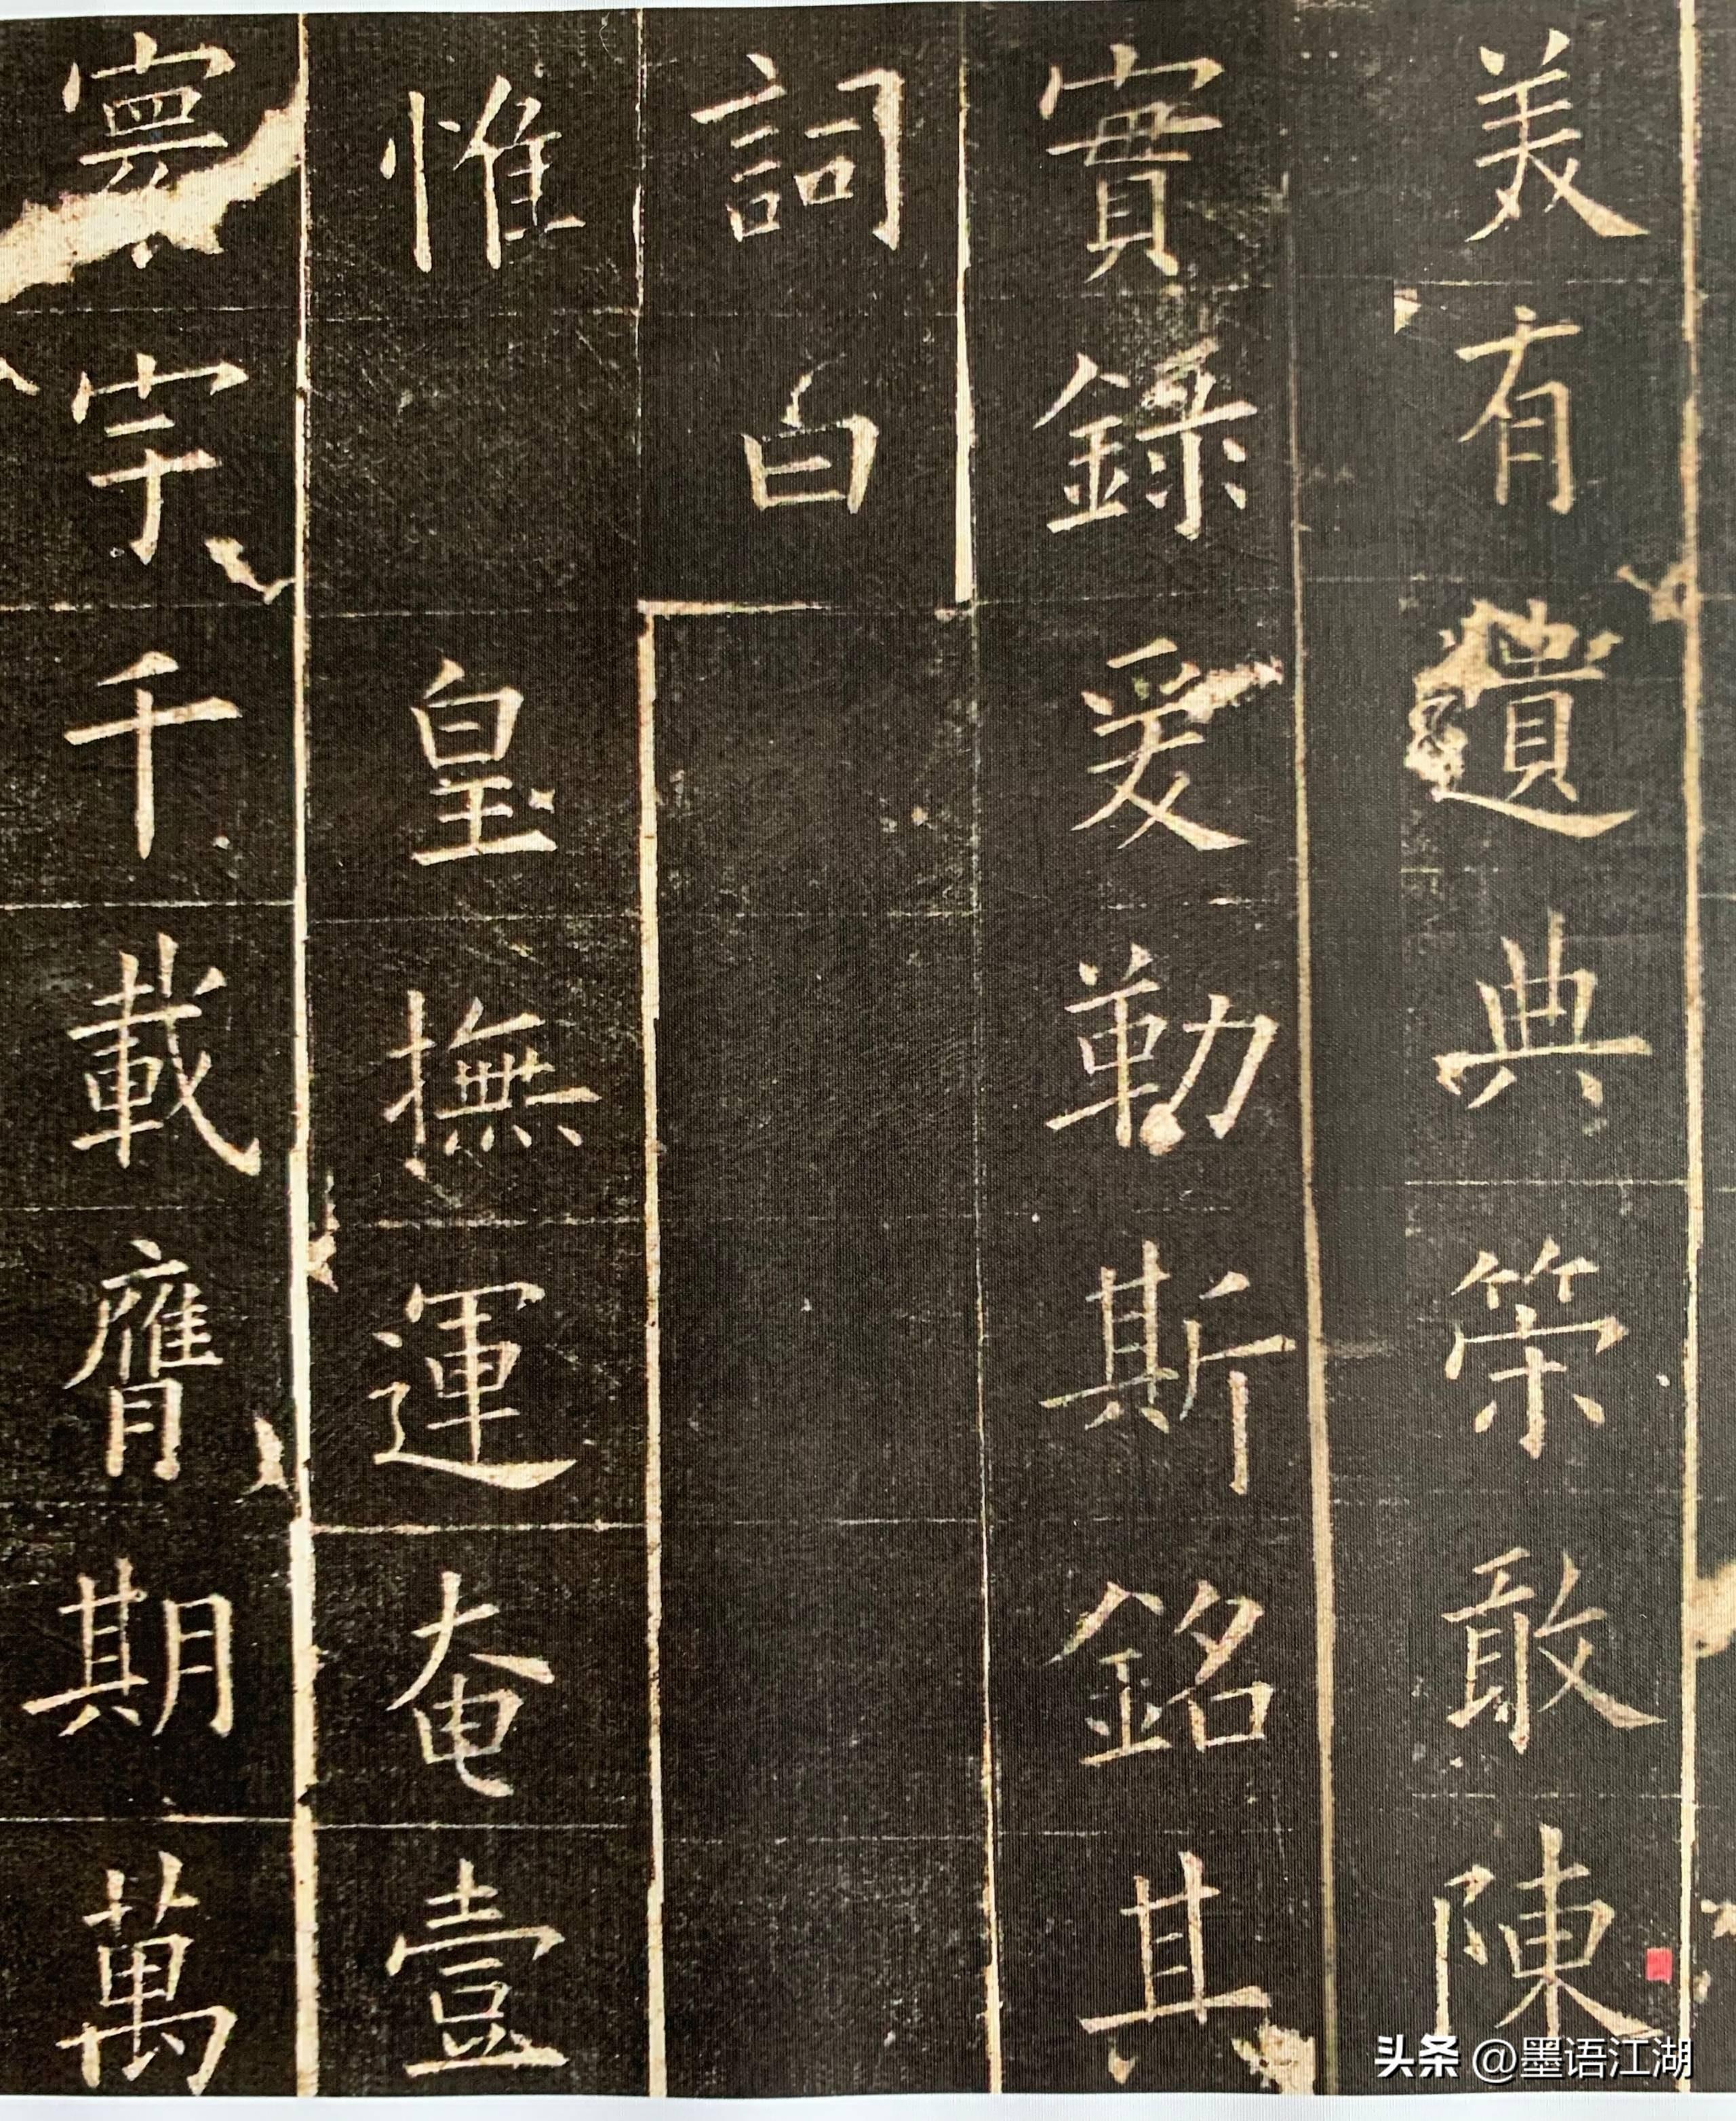 美有遺典榮敢陳
實錄爰勒斯銘其
詞曰
惟 皇撫運奄壹
寰宇千載膺期萬
头条 @墨语江湖